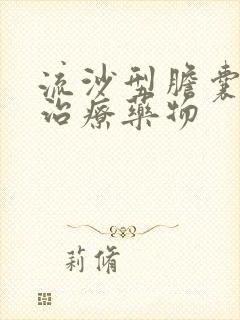 流沙型膽囊
治療藥物
莉脩